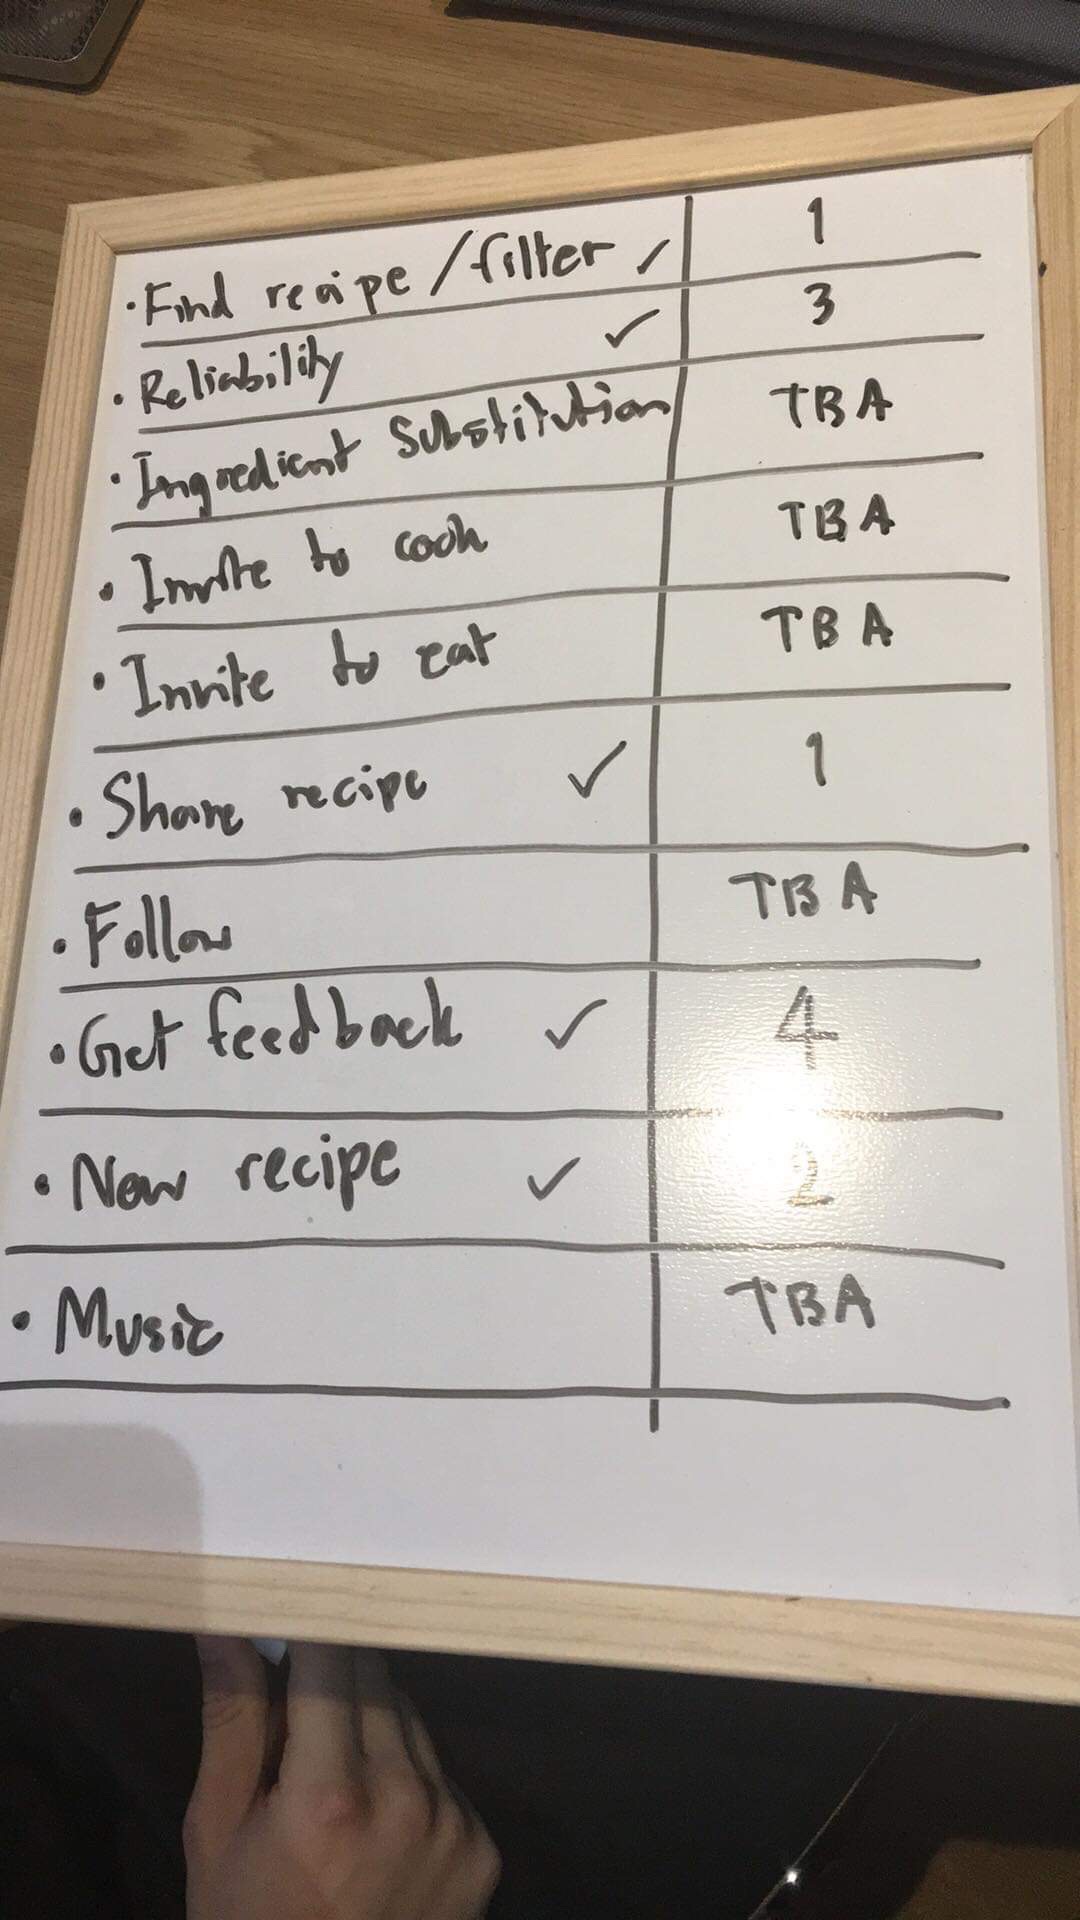 · Find recipe / filter ✓ 1
· Reliability ✓ 3
· Ingredient Substitution TBA
· Invite to cook TBA
· Invite to eat TBA
· Share recipe ✓ 1
· Follow TBA
· Get feedback ✓ 4
· New recipe ✓ 2
· Music TBA